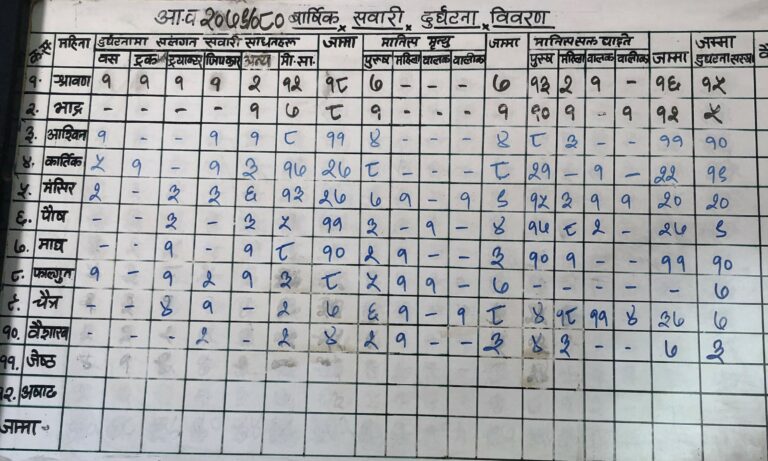 आ.व २०७९/०८० बार्षिक सवारी दुर्घटना विवरण
क्र.स. महिना दुर्घटनामा संलग्न सवारी साधनहरू जम्मा मानिस मृत्यु जम्मा जम्मा
बस ट्रक ट्र्याक्टर जिपकार अन्य मो.सा. पुरुष महिला बालक बालीका पुरुष महिला बालक बालीका जम्मा
१. श्रावण १ १ १ १ २ १२ १८ ७ - - - ७ १३ २ १ - १६ १५
२. भाद्र - - - - १ ७ ८ १ - - - १ १० १ - १ १२ ५
३. आश्विन १ - - १ १ ८ ११ ४ - - - ४ ८ ३ - - ११ १०
४. कार्तिक ५ १ - १ ३ १७ २७ ८ - - - ८ २१ - १ - २२ १६
५. मंसिर २ - ३ ३ ६ १३ २७ ७ १ - १ ९ १५ ३ १ १ २० २०
६. पौष - - ३ - ३ ५ ११ ३ - १ - ४ १७ ८ २ - २७ ९
७. माघ - - १ - १ ८ १० २ १ - - ३ १० १ - - ११ १०
८. फाल्गुन १ - १ २ १ ३ ८ ५ १ १ - ७ - - - - - ७
९. चैत्र - - ४ १ - २ ७ ६ १ - १ ८ ४ १८ ११ ४ ३७ ७
१०. वैशाख - - - २ - २ ४ २ १ - - ३ ४ ३ - - ७ ३
११. जेष्ठ
१२. अषाढ
जम्मा -